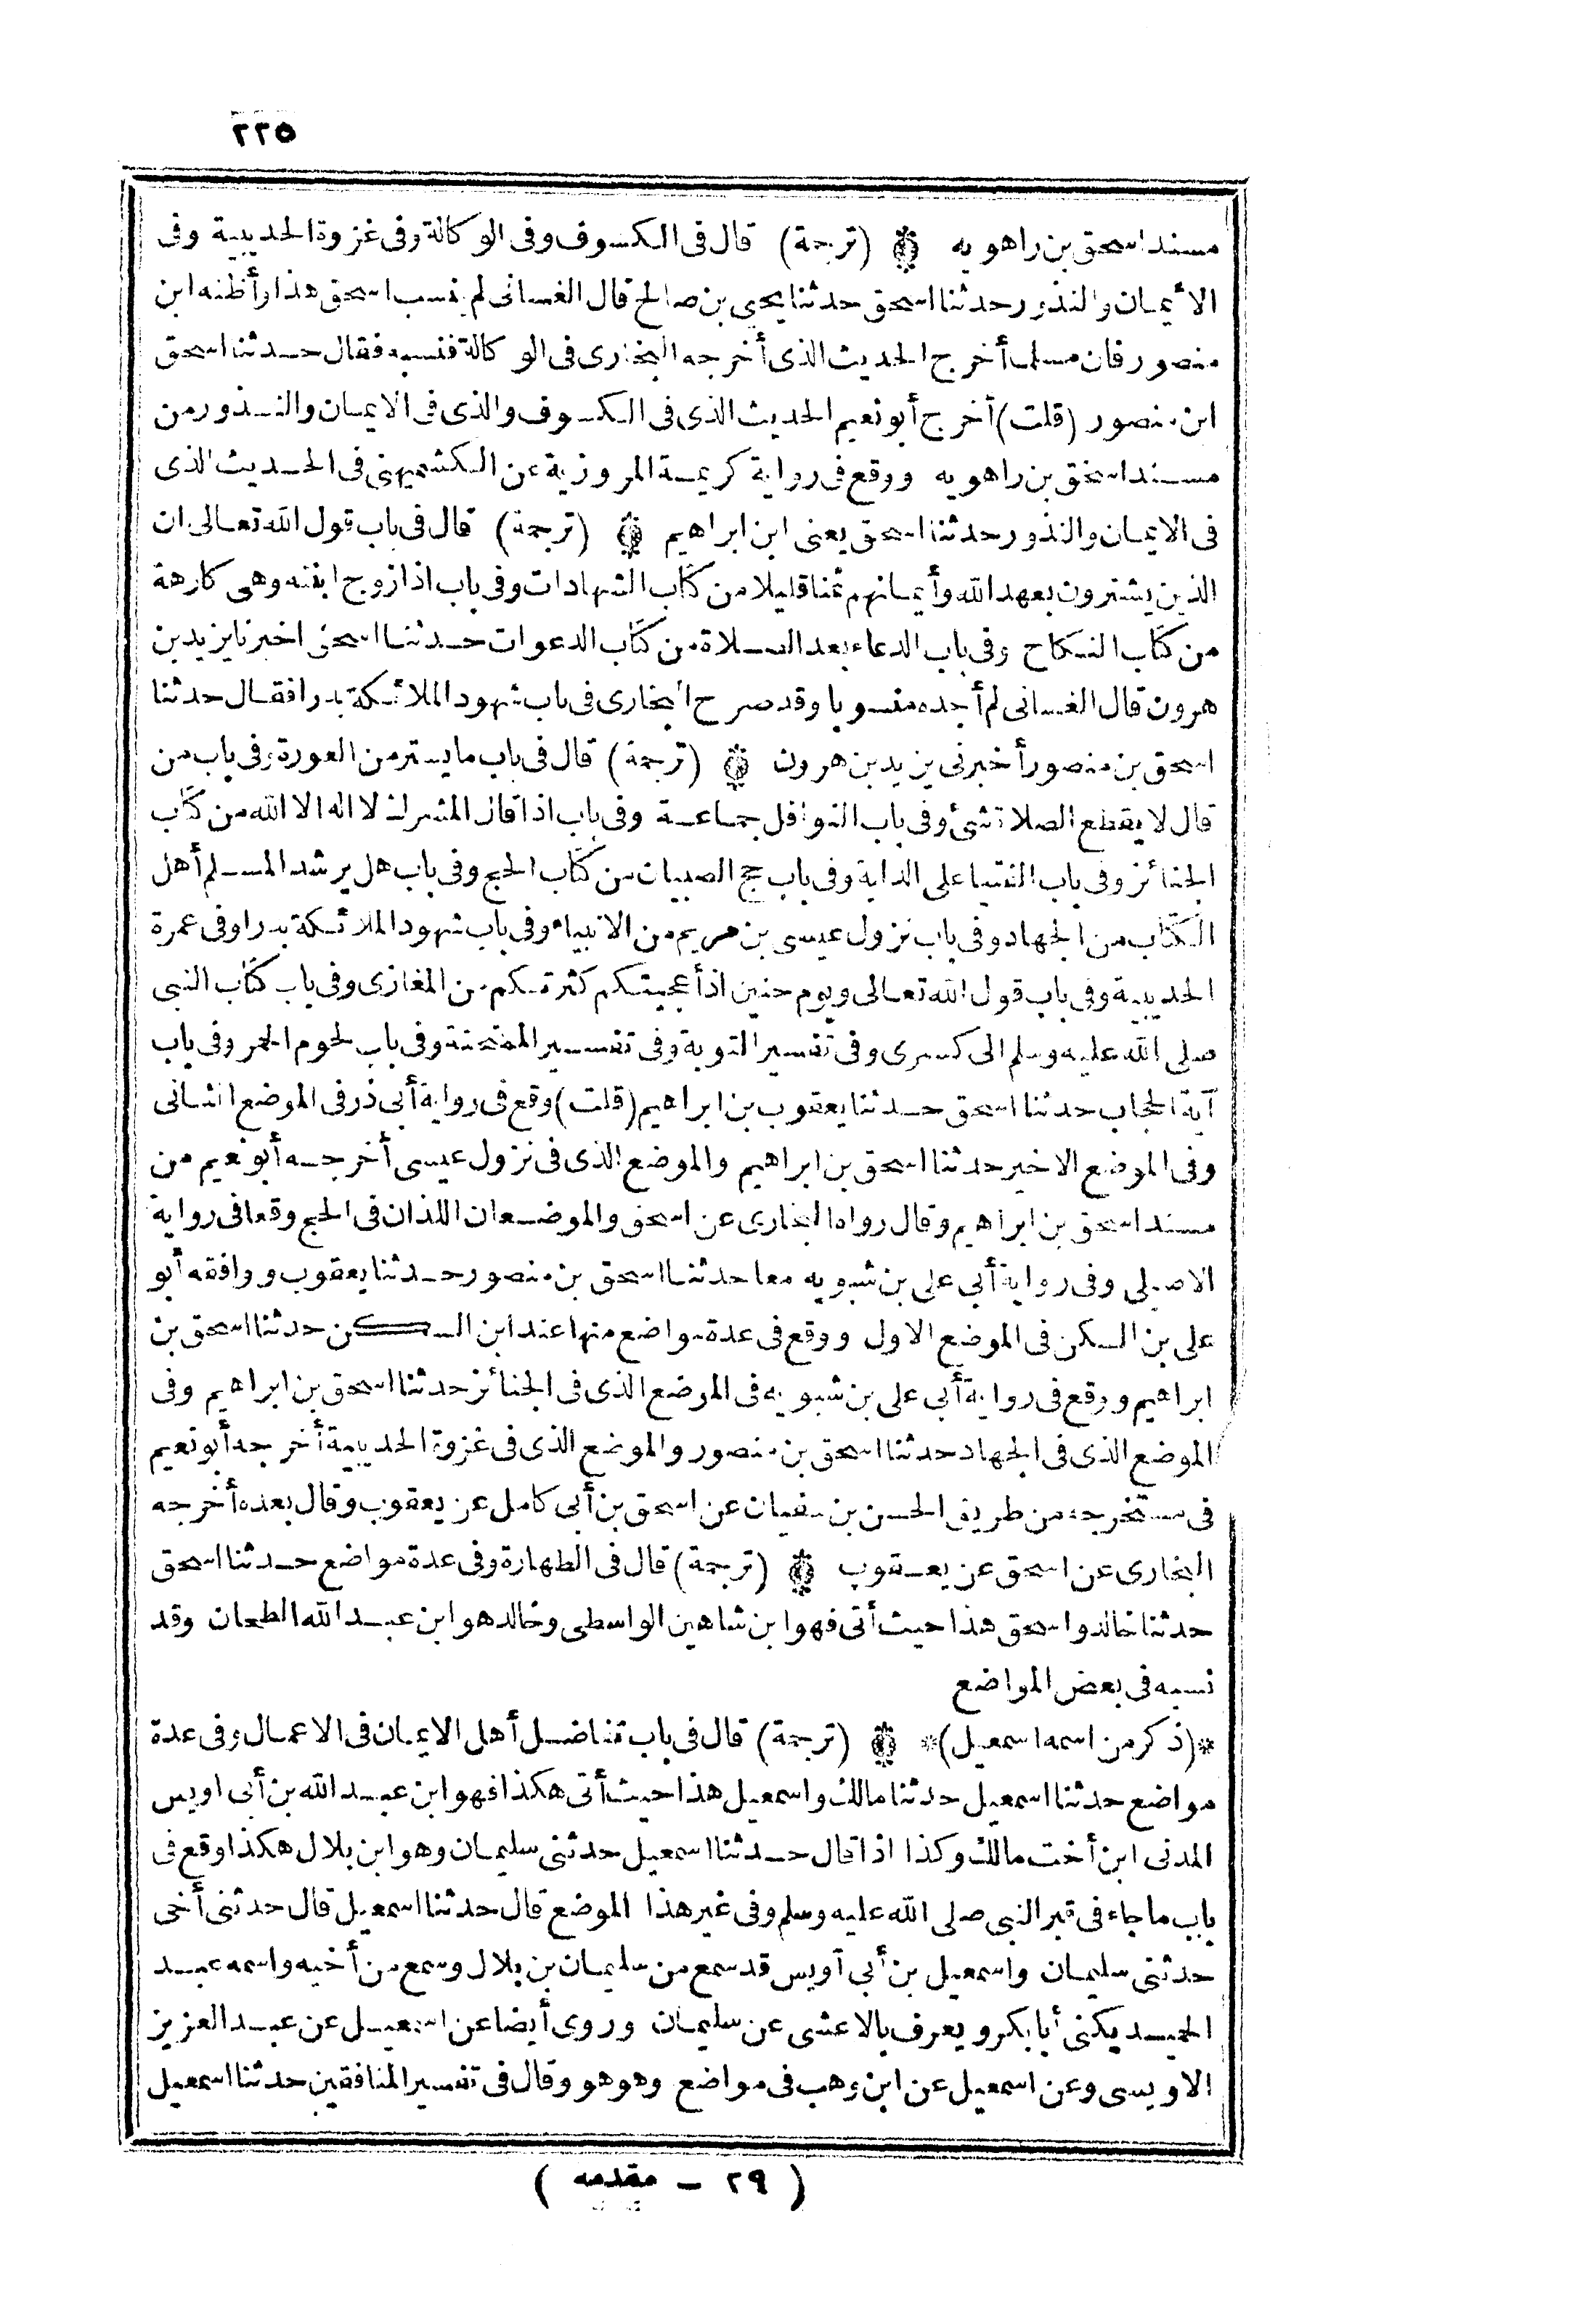 ٢٢٥
مسند اسحق بن راهويه ۞ (ترجمة) قال فى الكسوف وفى الوكالة وفى غزوة الحديبية وفى
الأيمان والنذور حدثنا اسحق حدثنا يحيى بن صالح قال الغسانى لم ينسب اسحق هذا وأظنه ابن
منصور فان مسلما أخرج الحديث الذى أخرجه البخارى فى الوكالة فنسبه فقال حدثنا اسحق
ابن منصور (قلت) أخرج أبو نعيم الحديث الذى فى الكسوف والذى فى الايمان والنذور من
مسند اسحق بن راهويه ووقع فى رواية كريمة المروزية عن الكشميهنى فى الحديث الذى
فى الايمان والنذور حدثنا اسحق يعنى ابن ابراهيم ۞ (ترجمة) قال فى باب قول الله تعالى ان
الذين يشترون بعهد الله وأيمانهم ثمنا قليلا من كتاب الشهادات وفى باب اذا زوج ابنته وهى كارهة
من كتاب النكاح وفى باب الدعاء بعد الصلاة من كتاب الدعوات حدثنا اسحق اخبرنا يزيد بن
هرون قال الغسانى لم أجده منسوبا وقد صرح البخارى فى باب شهود الملائكة بدرا فقال حدثنا
اسحق بن منصور أخبرنى يزيد بن هرون ۞ (ترجمة) قال فى باب ما يستر من العورة وفى باب من
قال لا يقطع الصلاة شئ وفى باب النوافل جماعة وفى باب اذا قال المشرك لا اله الا الله من كتاب
الجنائز وفى باب الفتيا على الدابة وفى باب حج الصبيان من كتاب الحج وفى باب هل يرشد المسلم أهل
الكتاب من الجهاد وفى باب نزول عيسى بن مريم من الانبياء وفى باب شهود الملائكة بدرا وفى عمرة
الحديبية وفى باب قول الله تعالى ويوم حنين اذ أعجبتكم كثرتكم من المغازى وفى باب كتاب النبى
صلى الله عليه وسلم الى كسرى وفى تفسير التوبة وفى تفسير الممتحنة وفى باب لحوم الحمر وفى باب
آية الحجاب حدثنا اسحق حدثنا يعقوب بن ابراهيم (قلت) وقع فى رواية أبى ذر فى الموضع الثانى
وفى الموضع الاخير حدثنا اسحق بن ابراهيم والموضع الذى فى نزول عيسى أخرجه أبو نعيم من
مسند اسحق بن ابراهيم وقال رواه البخارى عن اسحق والموضعان اللذان فى الحج وقعا فى رواية
الاصيلى وفى رواية أبى على بن شبويه معا حدثنا اسحق بن منصور حدثنا يعقوب ووافقه أبو
على بن السكن فى الموضع الاول ووقع فى عدة مواضع منها عند ابن السكن حدثنا اسحق بن
ابراهيم ووقع فى رواية أبى على بن شبويه فى الموضع الذى فى الجنائز حدثنا اسحق بن ابراهيم وفى
الموضع الذى فى الجهاد حدثنا اسحق بن منصور والموضع الذى فى غزوة الحديبية أخرجه أبو نعيم
فى مستخرجه من طريق الحسن بن سفيان عن اسحق بن أبى كامل عن يعقوب وقال بعده أخرجه
البخارى عن اسحق عن يعقوب ۞ (ترجمة) قال فى الطهارة وفى عدة مواضع حدثنا اسحق
حدثنا خالد واسحق هذا حيث أتى فهو ابن شاهين الواسطى وخالد هو ابن عبد الله الطحان وقد
نسبه فى بعض المواضع
*(ذكر من اسمه اسمعيل)* ۞ (ترجمة) قال فى باب تفاضل أهل الايمان فى الاعمال وفى عدة
مواضع حدثنا اسمعيل حدثنا مالك واسمعيل هذا حيث أتى هكذا فهو ابن عبد الله بن أبى اويس
المدنى ابن أخت مالك وكذا اذا قال حدثنا اسمعيل حدثنى سليمان وهو ابن بلال هكذا وقع فى
باب ما جاء فى قبر النبى صلى الله عليه وسلم وفى غير هذا الموضع قال حدثنا اسمعيل قال حدثنى أخى
حدثنى سليمان واسمعيل بن أبى أويس قد سمع من سليمان بن بلال وسمع من أخيه واسمه عبد
الحميد يكنى أبا بكر ويعرف بالاعشى عن سليمان وروى أيضا عن اسمعيل عن عبد العزيز
الاويسى وعن اسمعيل عن ابن وهب فى مواضع وهو هو وقال فى تفسير المنافقين حدثنا اسمعيل
(٢٩ - مقدمه)